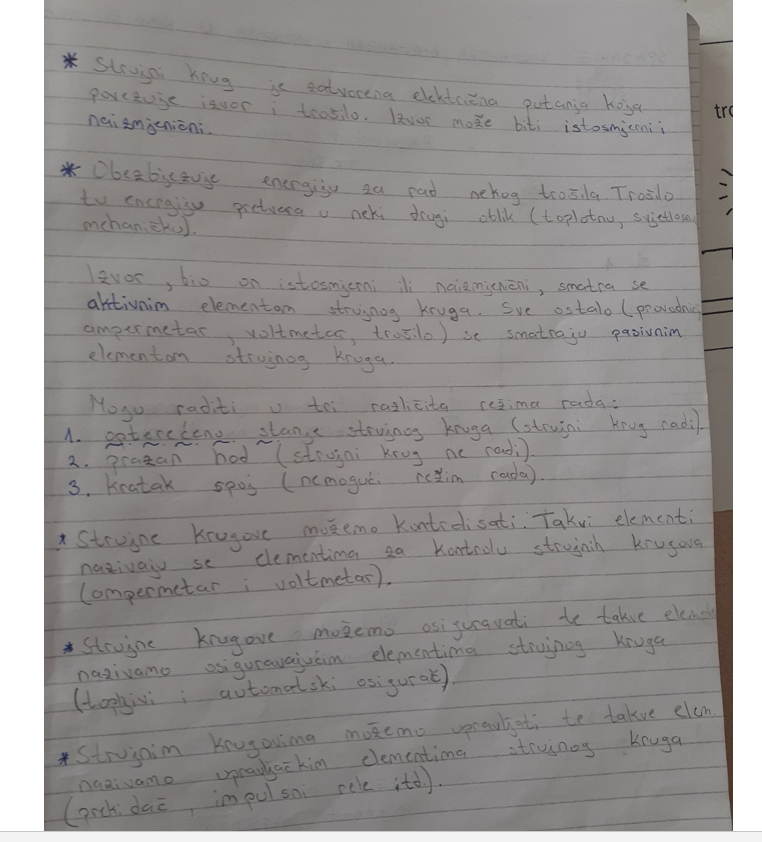 * Strujni krug je zatvorena električna putanja koja
povezuje izvor i trošilo. Izvor može biti istosmjerni i
naizmjenični.
* Obezbjezuje energiju za rad nekog trošila. Trošilo
tu energiju pretvara u neki drugi oblik (toplotnu, svjetlosnu
mchaničku).
Izvor, bio on istosmjerni ili naizmjenični, smatra se
aktivnim elementom strujnog kruga. Sve ostalo (provodnici
ampermetar, voltmetar, trošilo) se smatraju pasivnim
elementom strujnog kruga.
Mogu raditi u tri različita režima rada:
1. opterećeno stanje strujnog kruga (strujni krug radi).
2. prazan hod (strujni krug ne radi).
3. Kratak spoj (nemogući režim rada).
* Strujne krugove možemo kontrolisati. Takvi elementi
nazivaju se elementima za kontrolu strujnih krugova
(ampermetar i voltmetar).
* Strujne krugove možemo osiguravati te takve elem
nazivamo osiguravajućim elementima strujnog kruga
(topljivi i automatski osigurač).
* Strujnim krugovima možemo upravljati te takve elem
nazivamo upravljačkim elementima strujnog kruga
(prekidač, impulsni rele itd).